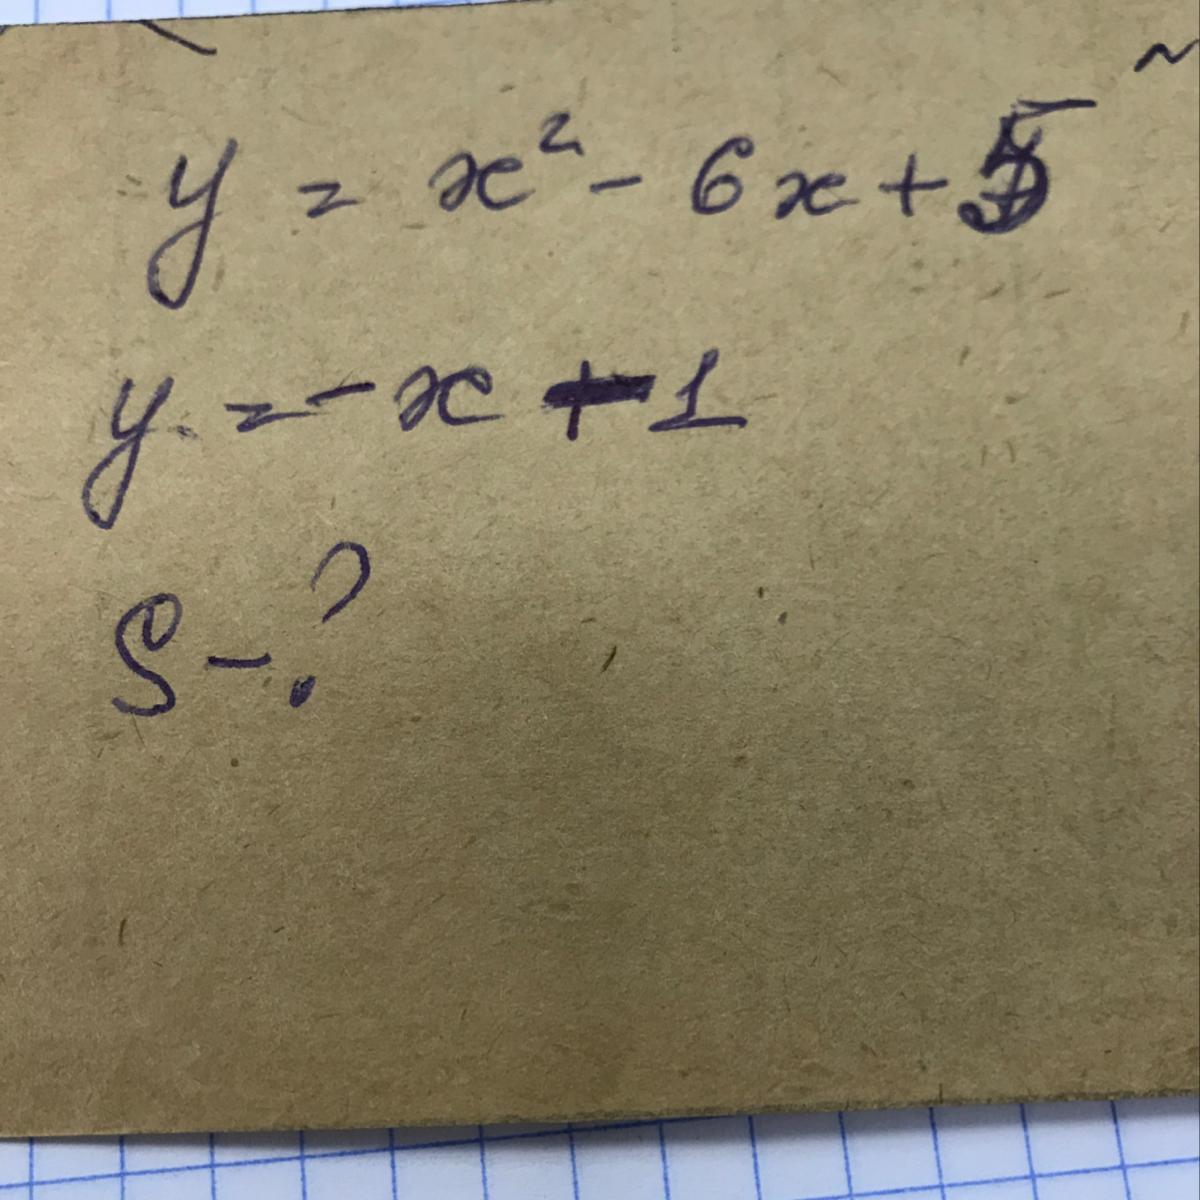 y = x² - 6x + 5
y = -x + 1
S - ?